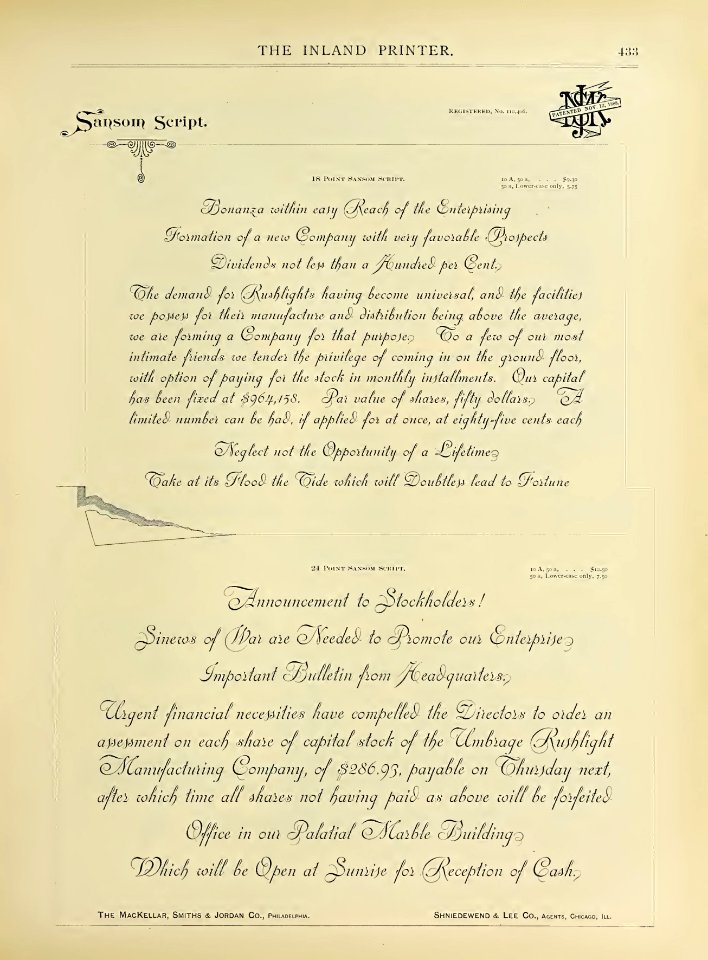 THE INLAND PRINTER.
433
Sansom Script.
REGISTERED, No. 111,416.
PATENTED NOV. 12, 1889
18 POINT SANSOM SCRIPT.
10 A, 50 a, . . . $9.30
50 a, Lower-case only, 5.75
Bonanza within easy Reach of the Enterprising
Formation of a new Company with very favorable Prospects
Dividends not less than a Hundred per Cent.
The demand for Rushlights having become universal, and the facilities
we possess for their manufacture and distribution being above the average,
we are forming a Company for that purpose. To a few of our most
intimate friends we tender the privilege of coming in on the ground floor,
with option of paying for the stock in monthly installments. Our capital
has been fixed at $964,158. Par value of shares, fifty dollars. A
limited number can be had, if applied for at once, at eighty-five cents each
Neglect not the Opportunity of a Lifetime
Take at its Flood the Tide which will Doubtless lead to Fortune
24 POINT SANSOM SCRIPT.
10 A, 50 a, . . . $12.50
50 a, Lower-case only, 7.50
Announcement to Stockholders!
Sinews of War are Needed to Promote our Enterprise
Important Bulletin from Headquarters.
Urgent financial necessities have compelled the Directors to order an
assessment on each share of capital stock of the Umbrage Rushlight
Manufacturing Company, of $286.93, payable on Thursday next,
after which time all shares not having paid as above will be forfeited
Office in our Palatial Marble Building
Which will be Open at Sunrise for Reception of Cash.
THE MACKELLAR, SMITHS & JORDAN CO., PHILADELPHIA.
SHNIEDEWEND & LEE CO., AGENTS, CHICAGO, ILL.